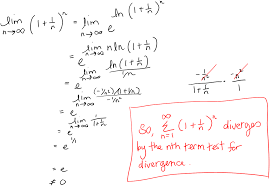 lim n→∞ (1 + 1/n)^n = lim n→∞ e^ln(1 + 1/n)^n
= e^lim n→∞ n ln(1 + 1/n)
= e^lim n→∞ ln(1 + 1/n) / 1/n
= e^lim n→∞ (-1/n²)/(1+1/n) / -1/n²
= e^lim n→∞ 1/(1+1/n)
= e^1/1
= e
≠ 0
-1/n² / 1+1/n · -n²/1
So, ∞ Σ n=1 (1 + 1/n)^n diverges
by the nth term test for
divergence